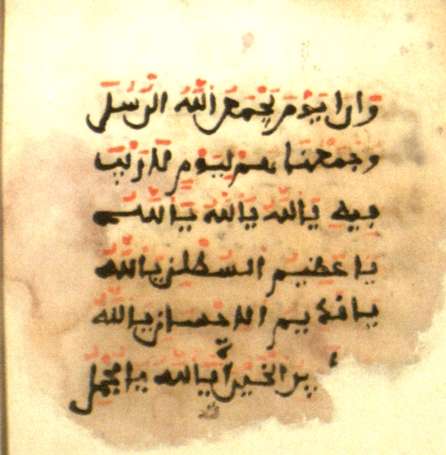 يوم يجمع الله الرسل
وجمعناهم ليوم لا ريب
فيه يا الله يا الله يا الله
يا عظيم السلطن يا الله
يا قديم الاحسان يا الله
الخير يا الله يا